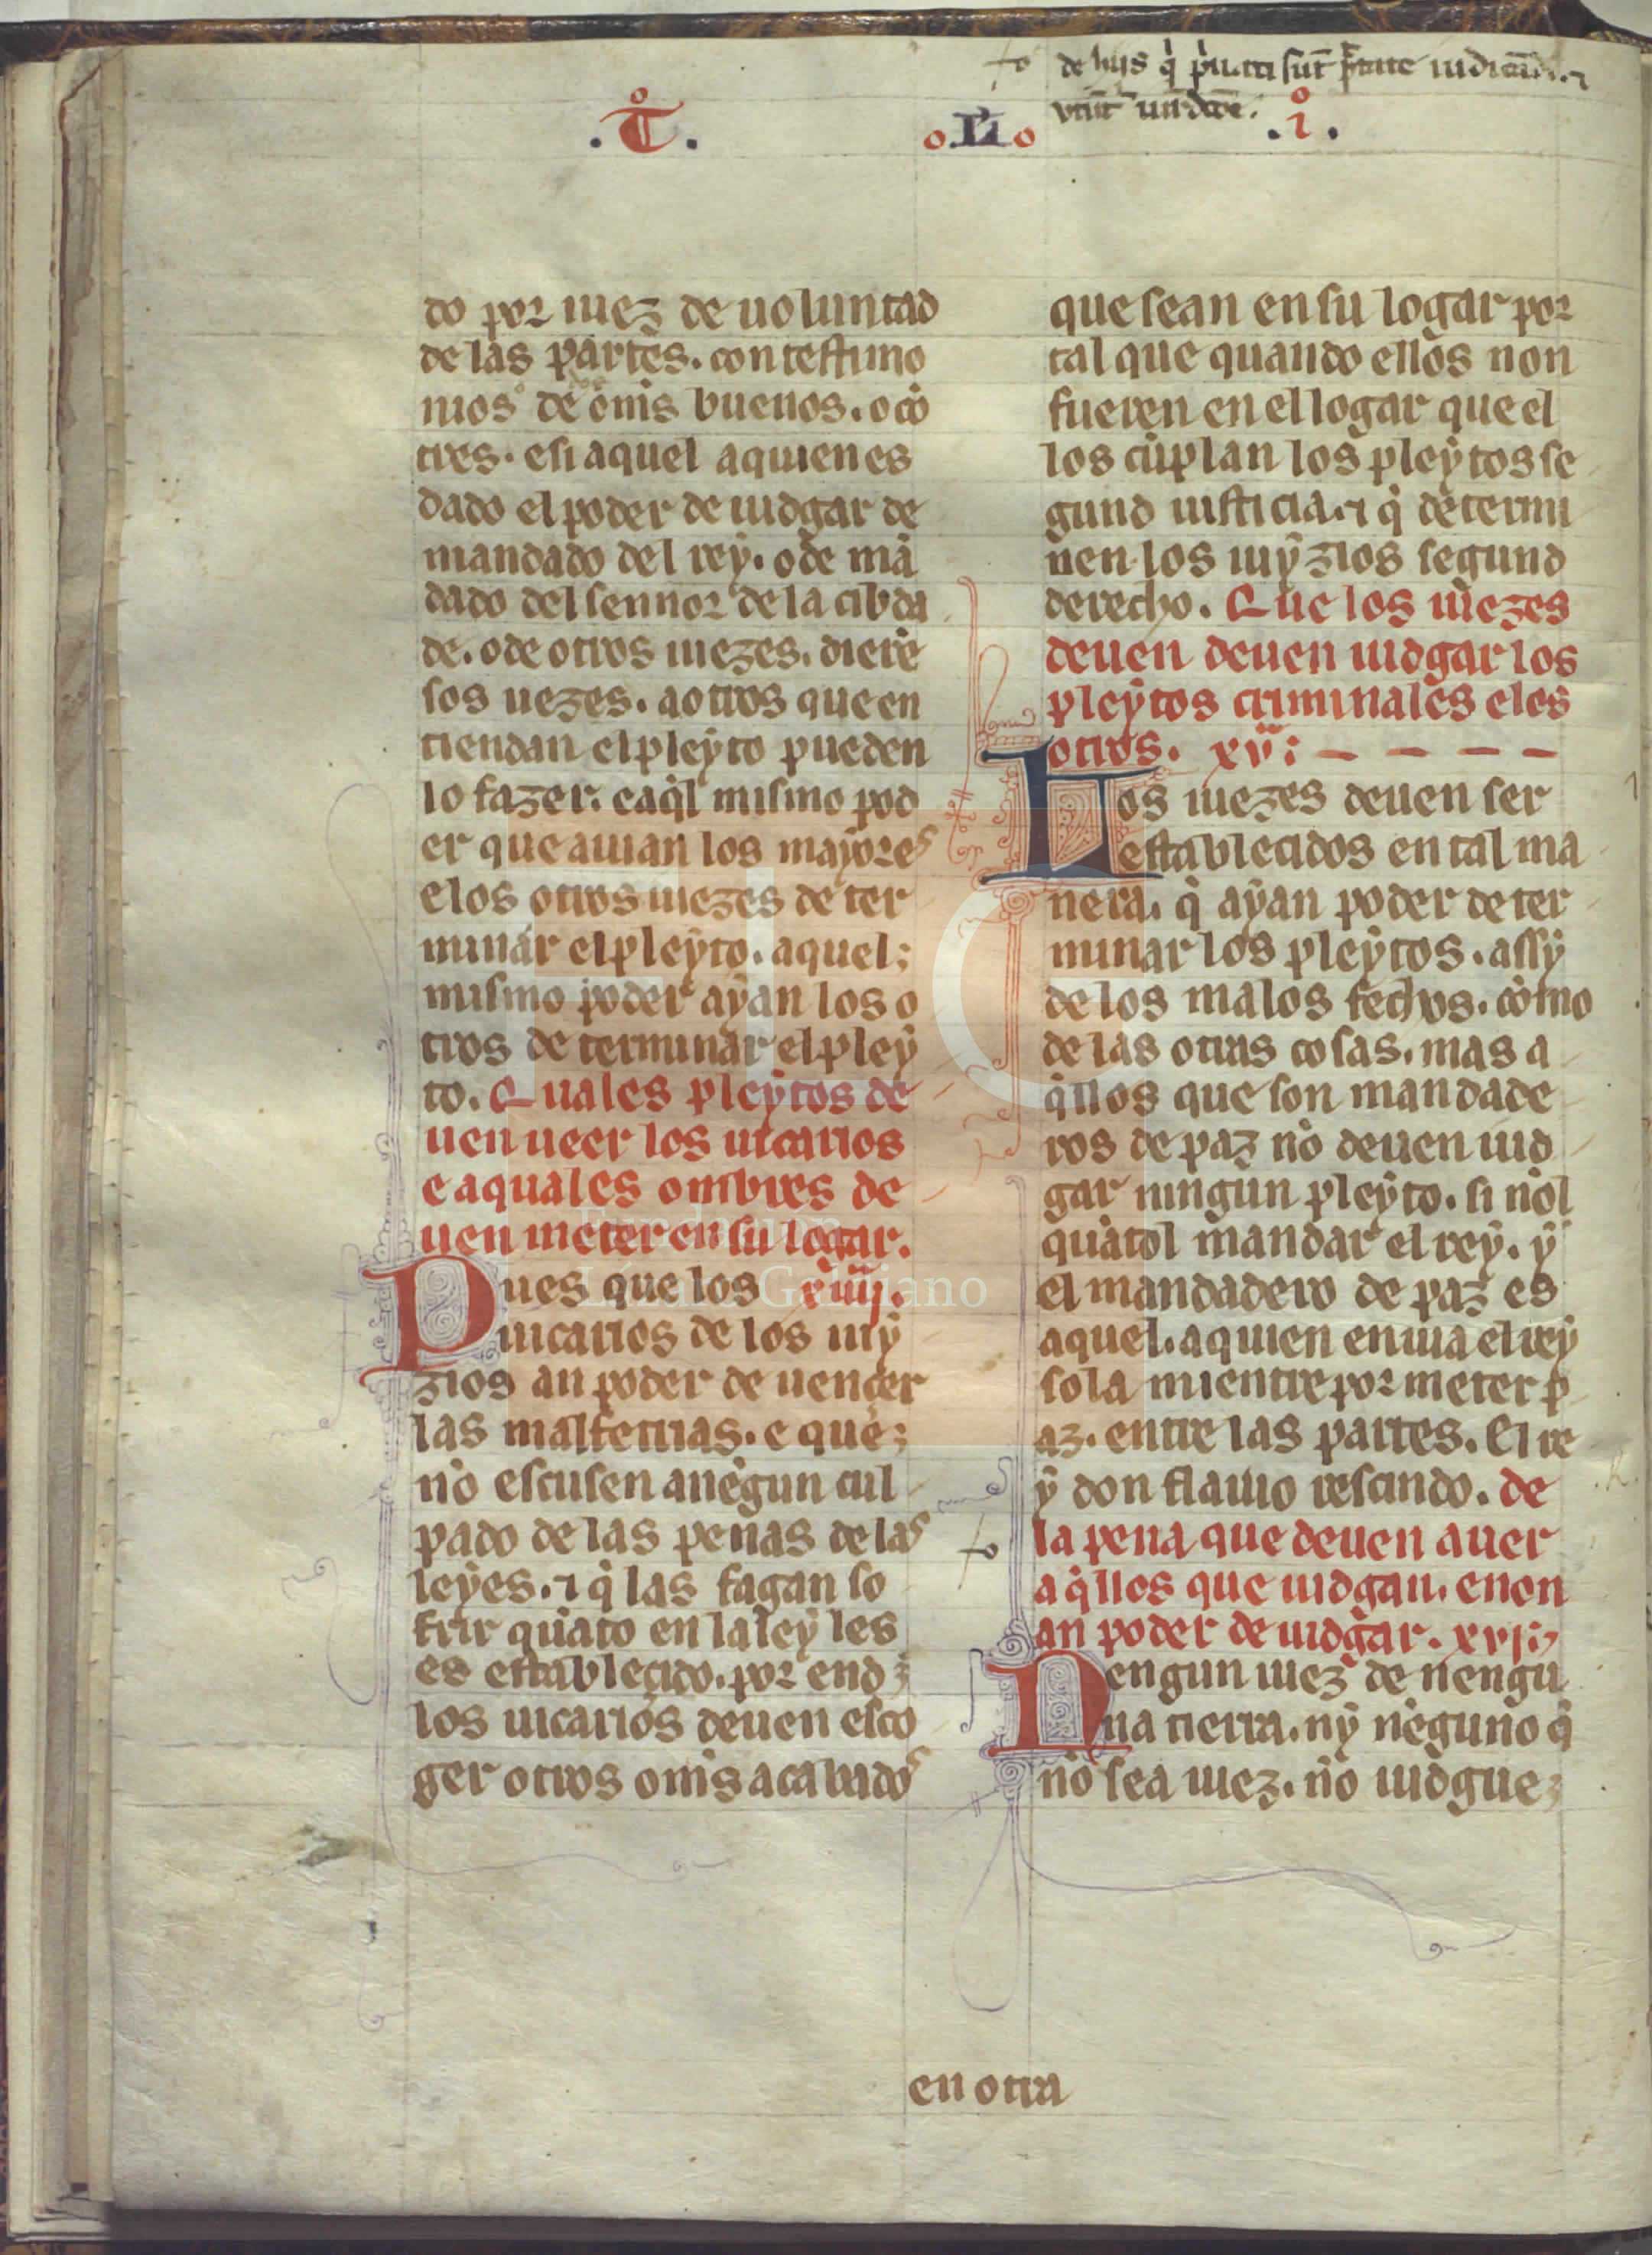 .T.
.Li.
.i.
de hiis q̇
iudicandi
do por iuez de uoluntad
de las partes. con testimo
nios de om̄s buenos. o cō
tres. e si aquel a quien es
dado el poder de iudgar de
mandado del rey. o de mā
dado del sennor de la cibda
de. o de otros iuezes. dierē
sos uezes. a otros que en
tiendan el pleyto pueden
lo fazer. e aq̇l mismo pod
er que auian los mayores
e los otros iuezes de ter
minar el pleyto. aquel;
mismo poder ayan los o
tros de terminar el pley
to. Quales pleytos de
uen ueer los uicarios
e a quales ombres de
uen meter en su logar.
Pues que los xiiij.
uicarios de los iuy
zios an poder de uençer
las malfetrias. e que;
nō escusen a nēgun cul
pado de las penas de las
leyes. ⁊ q̇ las fagan so
frir quāto en la ley les
es establecido. por end;
los uicarios deuen esco
ger otros om̄s acabados
que sean en su logar por
tal que quando ellos non
fueren en el logar que el
los cūplan los pleytos se
gund iusticia. ⁊ q̇ determi
nen los iuyzios segund
derecho. Que los iuezes
deuen deuen iudgar los
pleytos criminales e los
otros. xv:
Los iuezes deuen ser
establecidos en tal ma
nera. q̇ ayan poder de ter
minar los pleytos. assy
de los malos fechos. cōmo
de las otras cosas. mas a
q̇llos que son mandade
ros de paz nō deuen iud
gar ningun pleyto. si nōl
quātol mandar el rey. y
el mandadero de paz es
aquel. a quien enuia el rey
sola mientre por meter p
az. entre las partes. El re
y don flauio rescindo. de
la pena que deuen auer
a q̇llos que iudgan. e non
an poder de iudgar. xvi.
Nengun iuez de nengu
na tierra. ny nēguno q̇
nō sea iuez. nō iudgue;
en otra
FLG
Fundación
Lázaro Galdiano